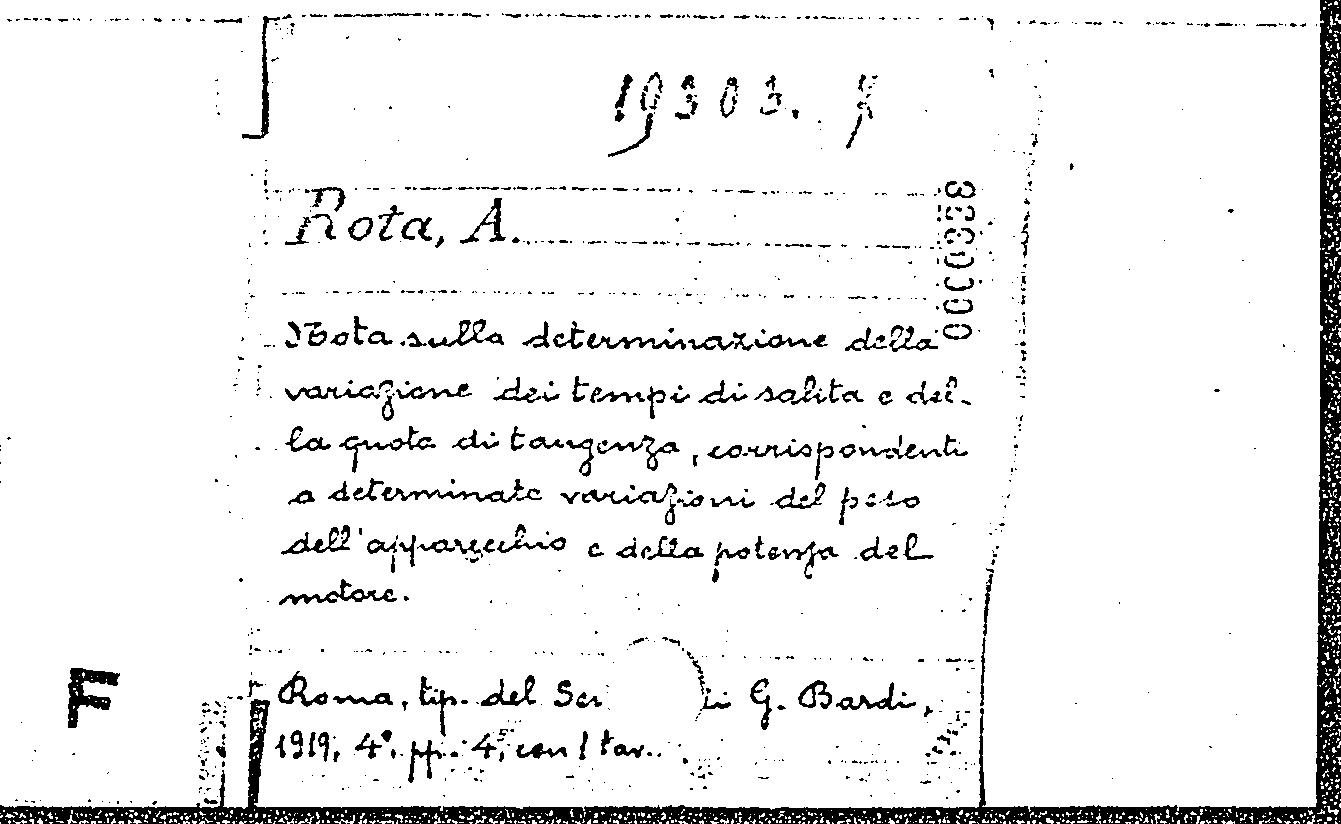 19303.
Rota, A.
0000338
Nota sulla determinazione della
variazione dei tempi di salita e del-
la quota di tangenza, corrispondenti
a determinate variazioni del peso
dell'apparecchio e della potenza del
motore.
Roma, tip. del G. Bardi,
1919, 4°. pp. 4, con 1 tav.
F